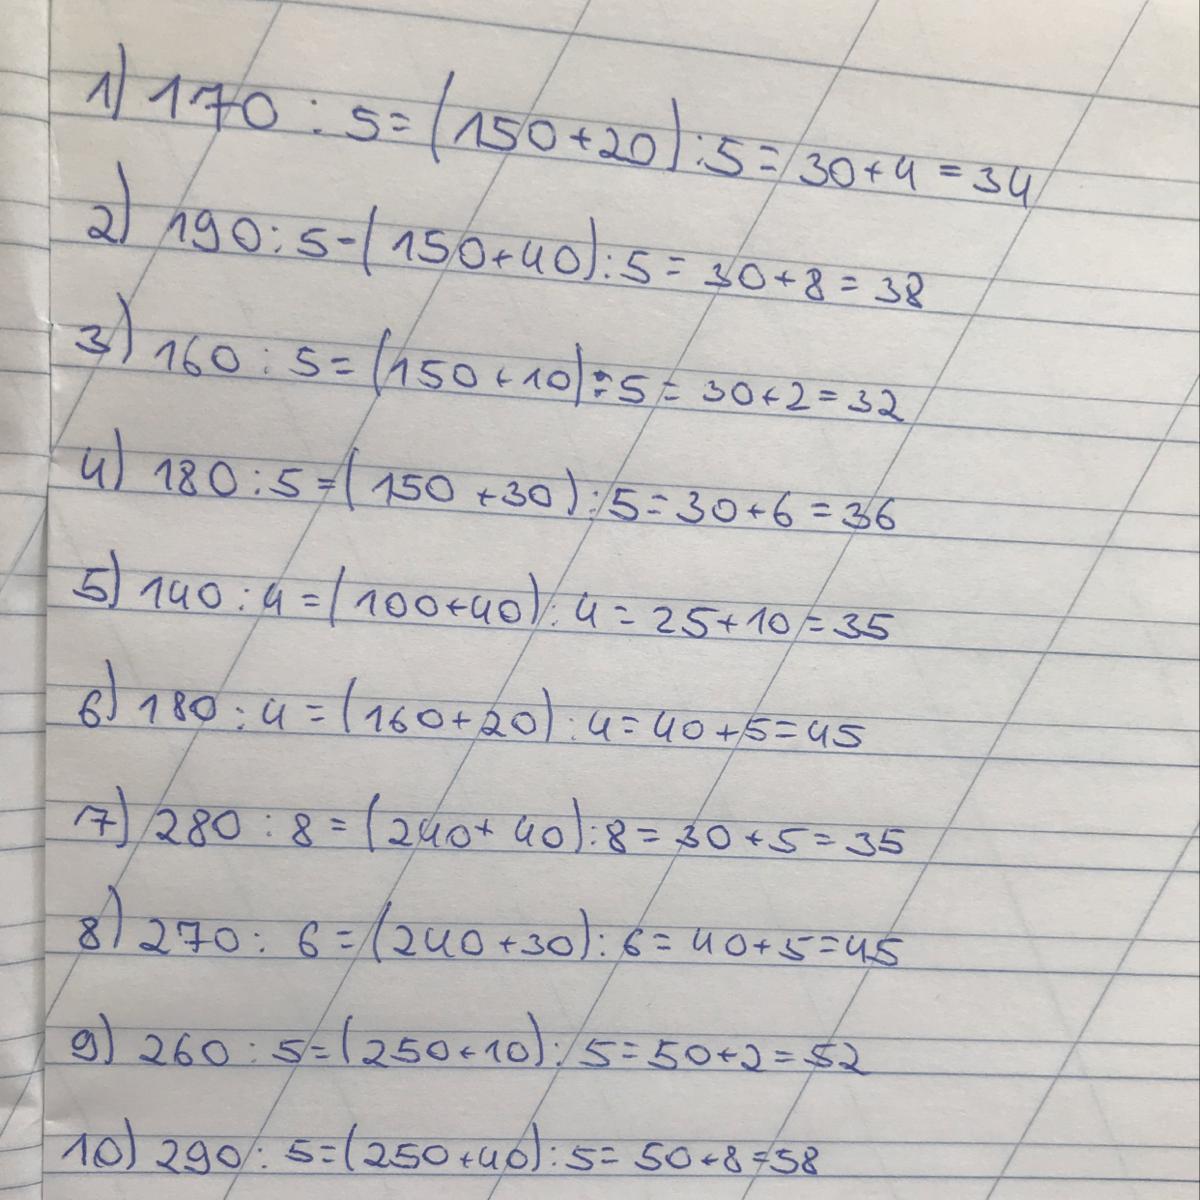 1) 170 : 5 = (150+20) : 5 = 30+4 = 34
2) 190 : 5 - (150+40) : 5 = 30+8 = 38
3) 160 : 5 = (150+10) : 5 = 30+2 = 32
4) 180 : 5 = (150+30) : 5 = 30+6 = 36
5) 140 : 4 = (100+40) : 4 = 25+10 = 35
6) 180 : 4 = (160+20) : 4 = 40+5 = 45
7) 280 : 8 = (240+40) : 8 = 30+5 = 35
8) 270 : 6 = (240+30) : 6 = 40+5 = 45
9) 260 : 5 = (250+10) : 5 = 50+2 = 52
10) 290 : 5 = (250+40) : 5 = 50+8 = 58